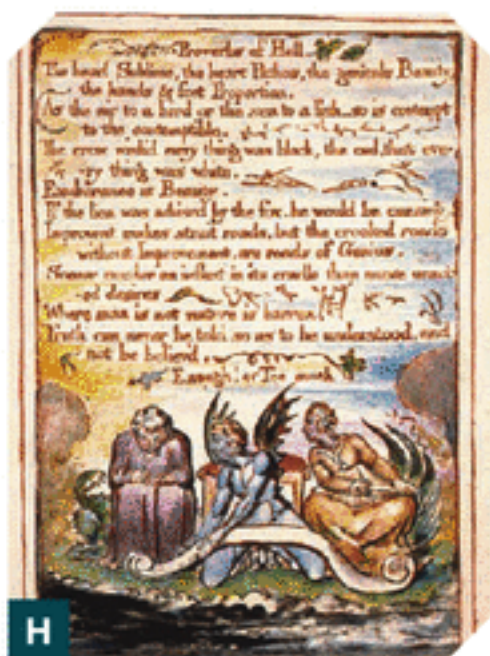 Proverbs of Hell.
The head Sublime, the heart Pathos, the genitals Beauty,
the hands & feet Proportion.
As the air to a bird or the sea to a fish, so is contempt
to the contemptible.
The crow wish'd every thing was black, the owl, that eve-
-ry thing was white.
Exuberance is Beauty.
If the lion was advised by the fox, he would be cunning.
Improvement makes strait roads, but the crooked roads
without Improvement, are roads of Genius.
Sooner murder an infant in its cradle than nurse unact-
-ed desires
Where man is not nature is barren.
Truth can never be told so as to be understood, and
not be believ'd.
Enough! or Too much
H